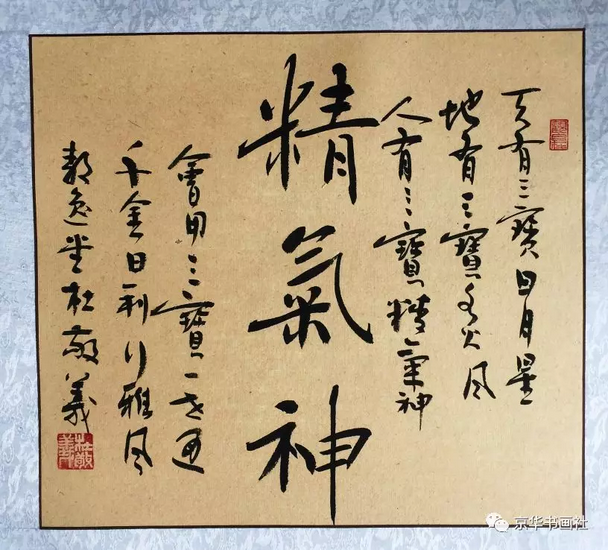 天有三寶日月星
地有三寶水火风
人有三寶精氣神
精氣神
會用三寶一世
千金日利行雅风
逸堂杜敬義
京华书画社